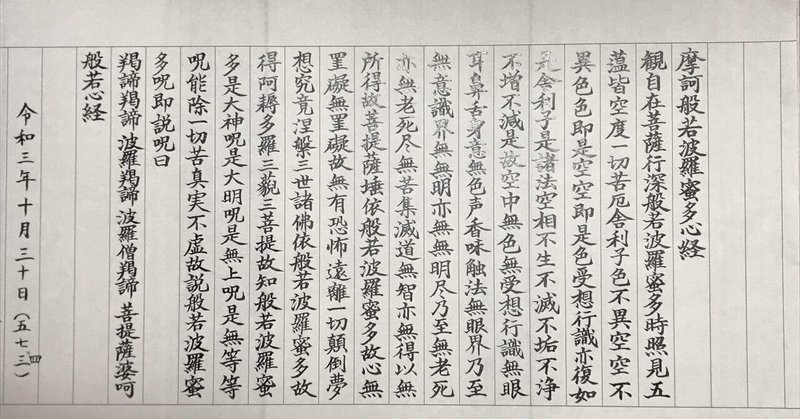 摩訶般若波羅蜜多心経
観自在菩薩行深般若波羅蜜多時照見五
薀皆空度一切苦厄舎利子色不異空空不
異色色即是空空即是色受想行識亦復如
是舎利子是諸法空相不生不滅不垢不浄
不増不減是故空中無色無受想行識無眼
耳鼻舌身意無色声香味触法無眼界乃至
無意識界無無明亦無無明尽乃至無老死
亦無老死尽無苦集滅道無智亦無得以無
所得故菩提薩埵依般若波羅蜜多故心無
罣礙無罣礙故無有恐怖遠離一切顛倒夢
想究竟涅槃三世諸佛依般若波羅蜜多故
得阿耨多羅三藐三菩提故知般若波羅蜜
多是大神呪是大明呪是無上呪是無等等
呪能除一切苦真実不虚故説般若波羅蜜
多呪即説呪曰
羯諦羯諦 波羅羯諦 波羅僧羯諦 菩提薩婆呵
般若心経
令和三年十月三十日(五七三)
四